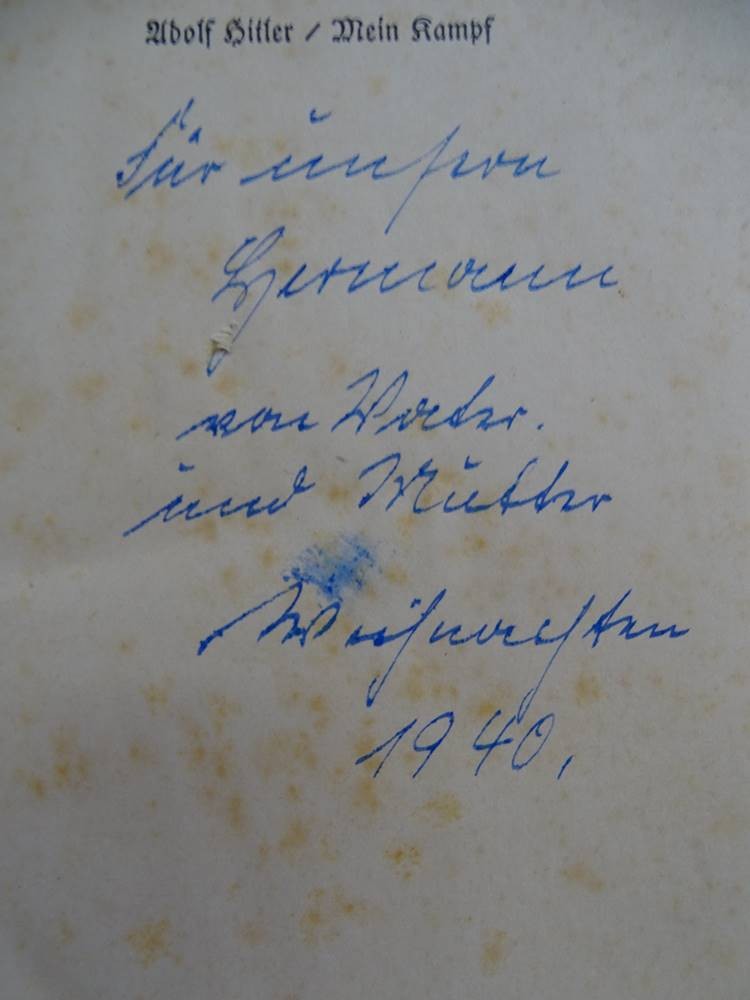 Adolf Hitler / Mein Kampf
Für unsern
Hermann
von Vater.
und Mutter
Weihnachten
1940.